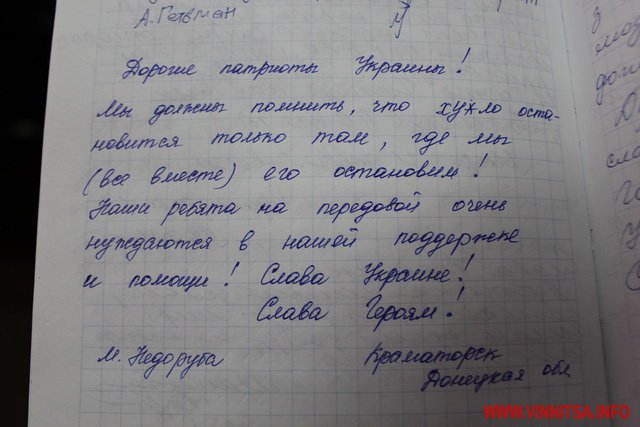 А. Гетьман
Дорогие патриоты Украины!
Мы должны помнить, что хуйло оста-
новится только там, где мы
(все вместе) его остановим!
Наши ребята на передовой очень
нуждаются в нашей поддержке
и помощи! Слава Украине!
Слава Героям!
М. Недоруба
Краматорск
Донецкая обл
WWW.VINNITSA.INFO